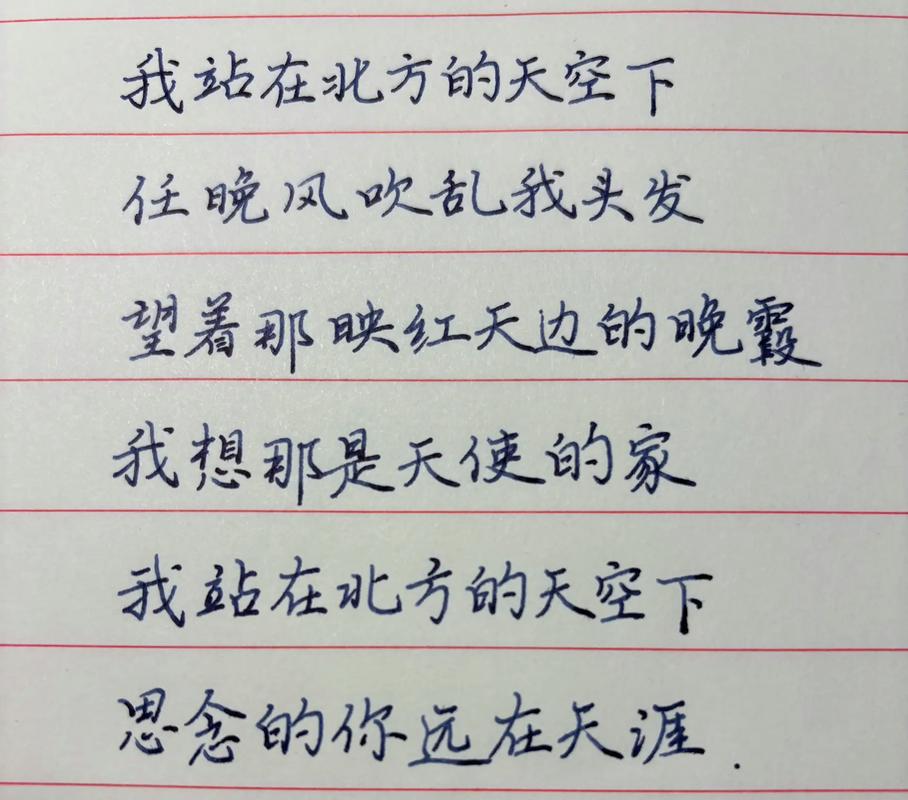 我站在北方的天空下
任晚风吹乱我头发
望着那映红天边的晚霞
我想那是天使的家
我站在北方的天空下
思念的你远在天涯.